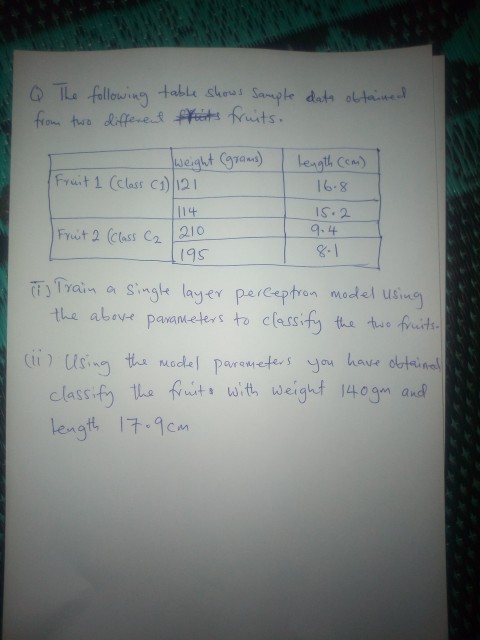 Q The following table shows Sample data obtained
from two different fruits.
weight (grams) length (cm)
Fruit 1 (Class C1) 121 16.8
114 15.2
Fruit 2 (Class C2 210 9.4
195 8.1
(i) Train a Single layer perceptron model using
the above parameters to classify the two fruits.
(ii) Using the model parameters you have obtained
classify the fruits with weight 140gm and
length 17.9cm